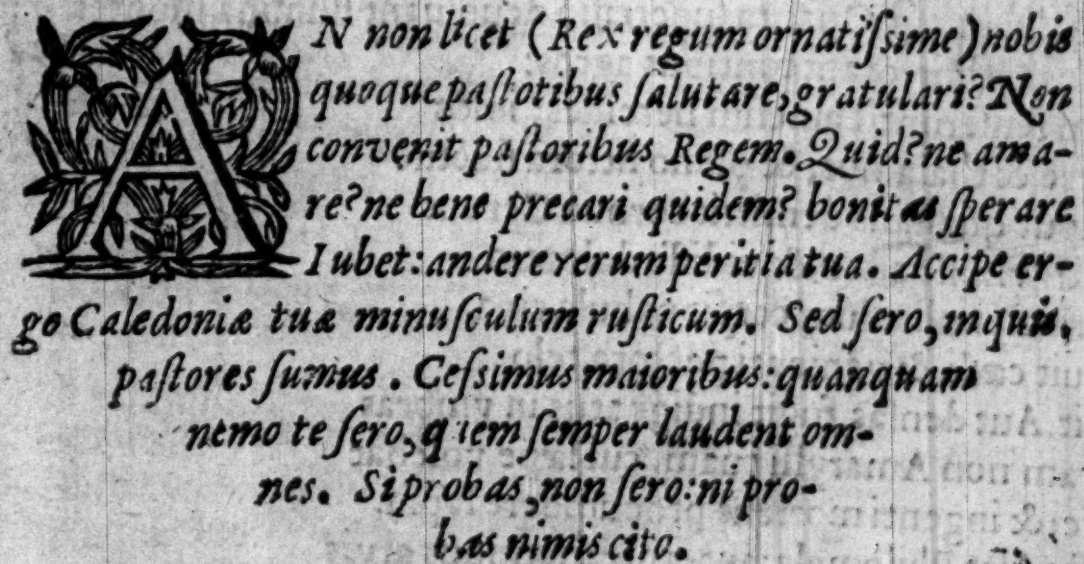 AN non licet (Rex regum ornatiſsime) nobis
quoque paſtotibus ſalutare, gratulari? Non
convenit paſtoribus Regem. Quid? ne ama-
re? ne bene precari quidem? bonitas ſperare
Iubet: andere rerum peritia tua. Accipe er-
go Caledoniæ tuæ minuſculum ruſticum. Sed ſero, inquis,
paſtores ſumus. Ceſsimus maioribus: quanquam
nemo te ſero, quem ſemper laudent om-
nes. Si probas, non ſero: ni pro-
bas nimis cito.